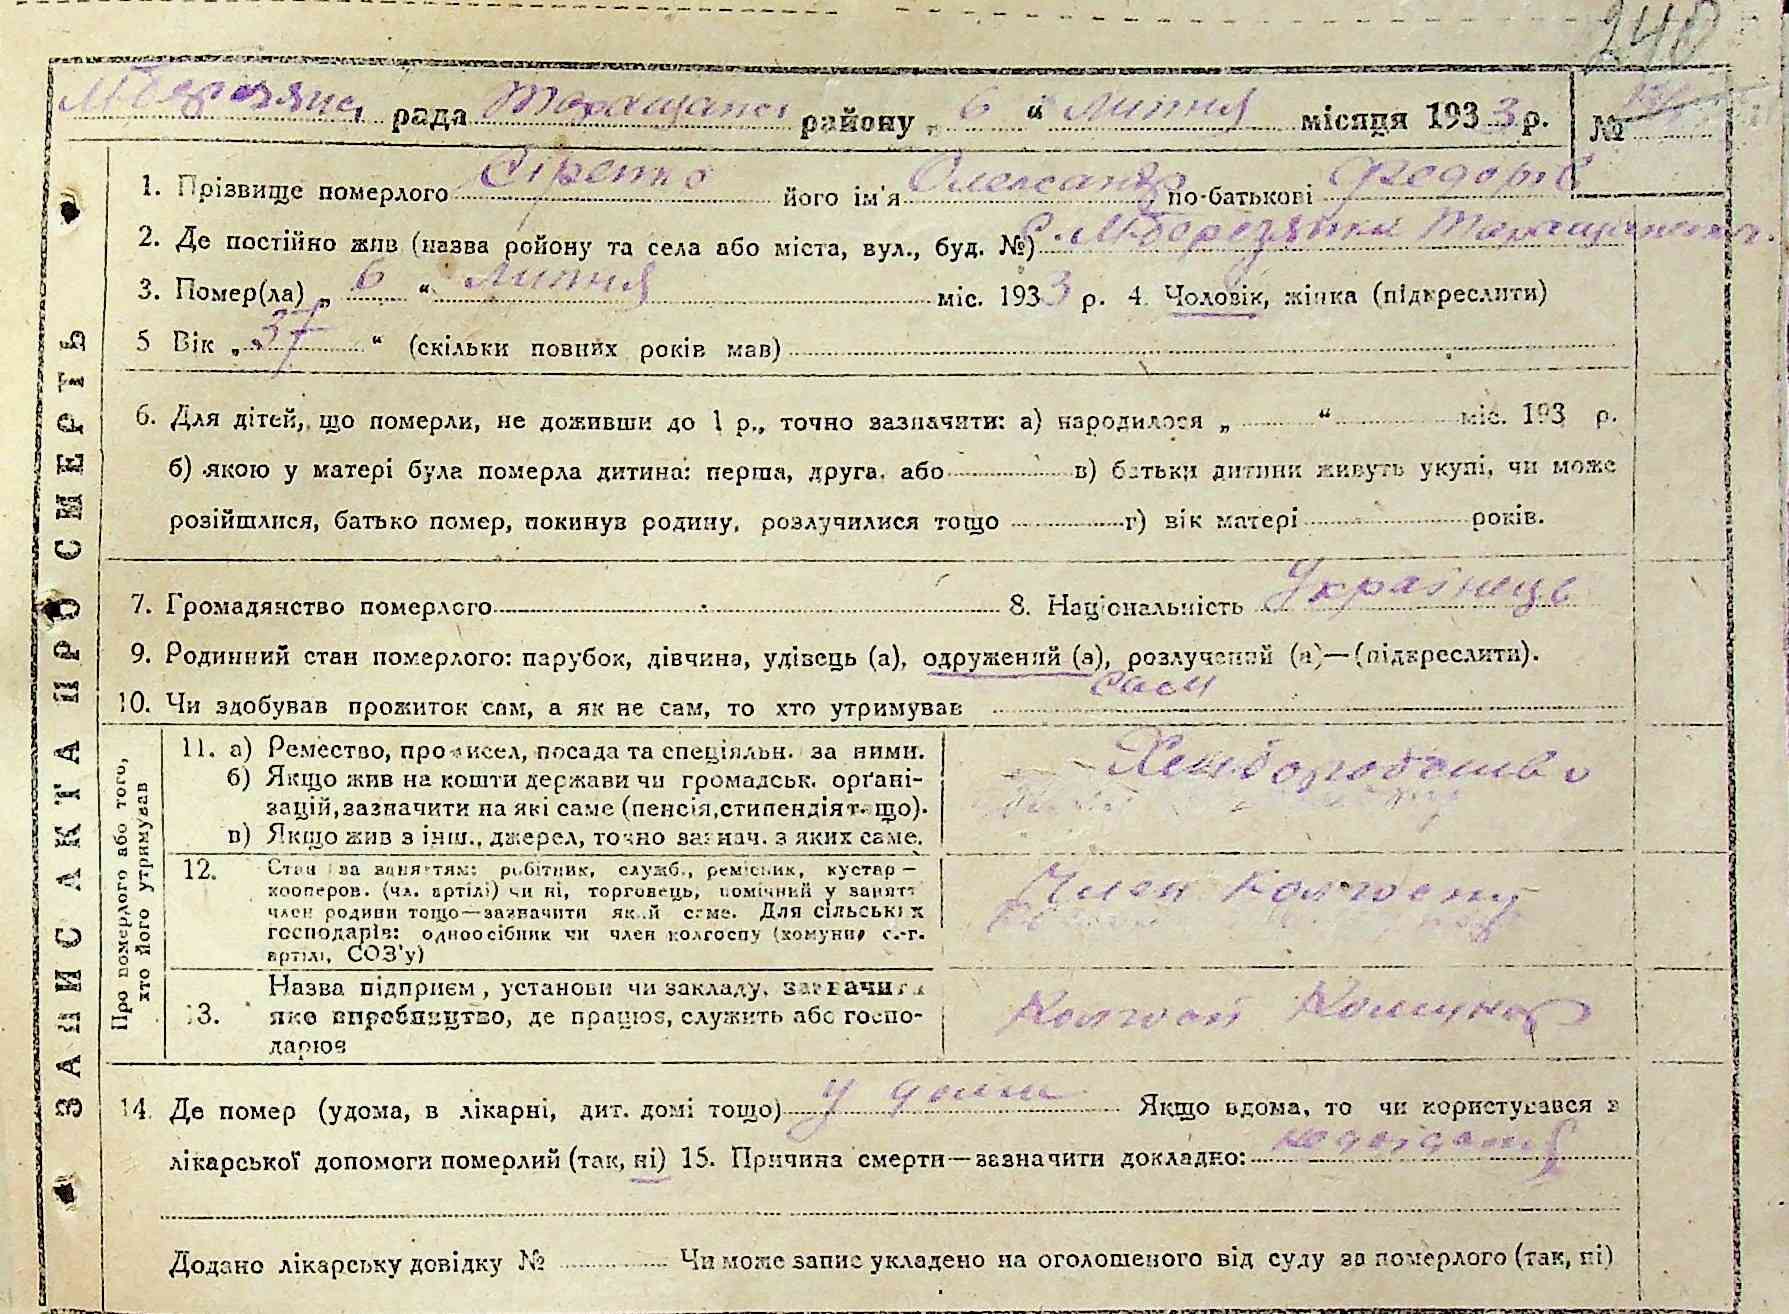 240
М.Березянс. рада Таращансь району „ 6 “ Липня місяця 1933 р. №
1. Прізвище померлого Сіренко його ім'я Олександр по-батькові Федорів
2. Де постійно жив (назва ройону та села або міста, вул., буд. №) с. М-Березянка Таращанськ.
3. Помер(ла) „ 6 “ Липня міс. 1933 р. 4. Чоловік, жінка (підкреслити)
5 Вік „ 37 “ (скільки повних років мав)
6. Для дітей, що померли, не доживши до 1 р., точно зазначити: а) народилося „ “ міс. 193 р.
б) якою у матері була померла дитина: перша, друга, або в) батьки дитини живуть укупі, чи може
розійшлися, батько помер, покинув родину, розлучилися тощо г) вік матері років.
7. Громадянство померлого 8. Національність Українець
9. Родинний стан померлого: парубок, дівчина, удівець (а), одружений (а), розлучений (а)—(підкреслити).
10. Чи здобував прожиток сам, а як не сам, то хто утримував сам
11. а) Ремество, промисел, посада та спеціяльн. за ними. Хліборобство
б) Якщо жив на кошти держави чи громадськ. органі-
зацій, зазначити на які саме (пенсія, стипендія тощо).
в) Якщо жив з інш., джерел, точно зазнач. з яких саме.
12. Стан за заняттям: робітник, служб., ремісник, кустар—
кооперов. (чл. артілі) чи ні, торговець, помічний у занятт
член родини тощо—зазначити який саме. Для сільських Член колгоспу
господарів: одноосібник чи член колгоспу (комуни, с.-г.
артілі, СОЗ'у)
13. Назва підприєм, установи чи закладу, зазначити
яке виробництво, де працює, служить або госпо- Колгосп Комунар
дарює
Про померлого або того,
хто його утримував
ЗАПИС АКТА ПРО СМЕРТЬ
14. Де помер (удома, в лікарні, дит. домі тощо) у доми Якщо вдома, то чи користувався з
лікарської допомоги померлий (так, ні) 15. Причина смерти—зазначити докладно: недоїдання
Додано лікарську довідку № Чи може запис укладено на оголошеного від суду за померлого (так, ні)